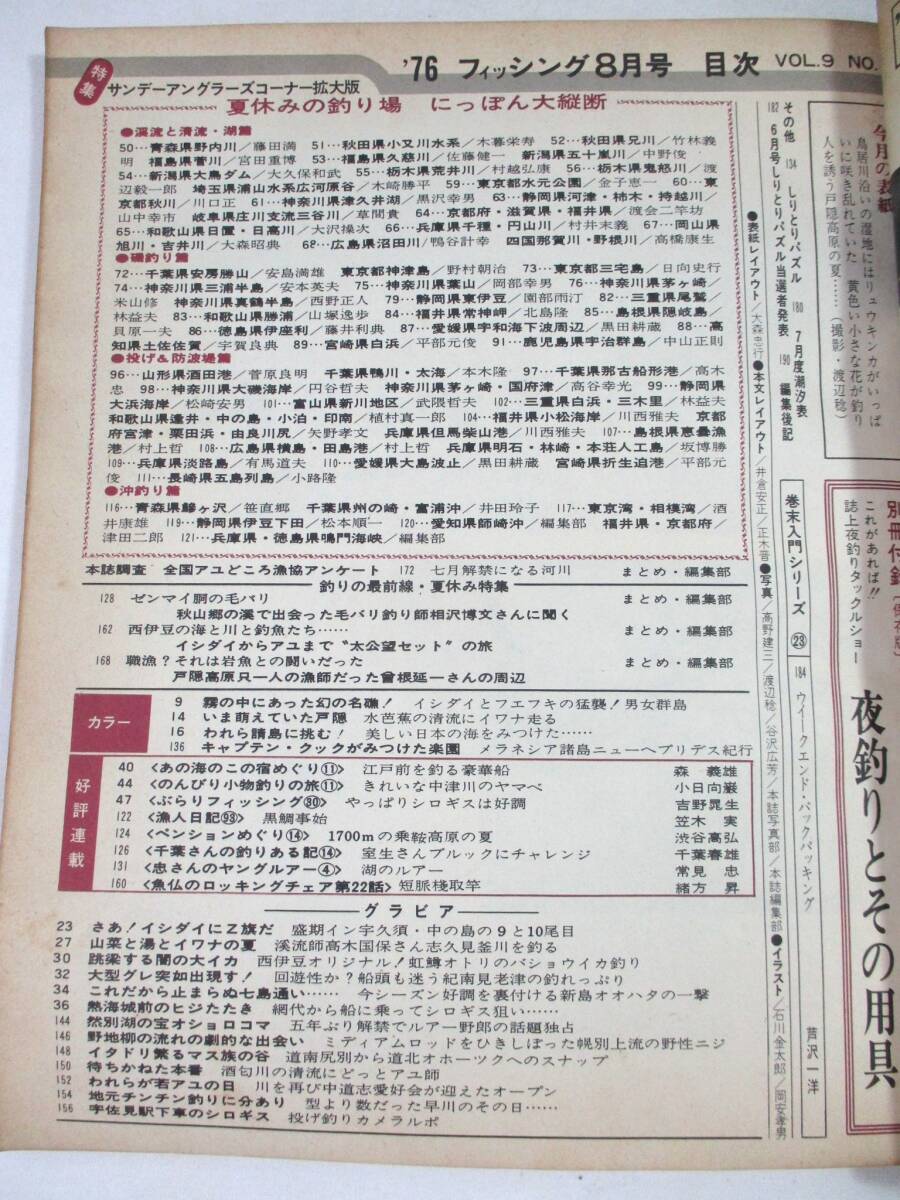 '76 フィッシング8月号 目次 VOL.9 NO.
特集
サンデーアングラーズコーナー拡大版
夏休みの釣り場 にっぽん大縦断
●渓流と清流・湖篇
50…青森県野内川／藤田満 51…秋田県小又川水系／木暮栄寿 52…秋田県兄川／竹林義
明 福島県菅川／宮田重博 53…福島県久慈川／佐藤健一 新潟県五十嵐川／中野俊一
54…新潟県大鳥ダム／大久保和武 55…栃木県荒井川／村越弘康 56…栃木県鬼怒川／渡
辺毅一郎 埼玉県浦山水系広河原谷／木崎勝平 59…東京都水元公園／金子恵一 60…東
京都秋川／川口正 61…神奈川県津久井湖／黒沢幸男 63…静岡県河津・柿木・持越川／
山中幸市 岐阜県庄川支流三谷川／草間貴 64…京都府・滋賀県・福井県／渡会二竿坊
65…和歌山県日置・日高川／大沢操次 66…兵庫県千種・円山川／村井末義 67…岡山県
旭川・吉井川／大森昭典 68…広島県沼田川／鴨谷計幸 四国那賀川・野根川／高橋康生
●磯釣り篇
72…千葉県安房勝山／安島満雄 東京都神津島／野村朝治 73…東京都三宅島／日向史行
74…神奈川県三浦半島／安本英夫 75…神奈川県葉山／岡部幸男 76…神奈川県茅ヶ崎／
米山修 神奈川県真鶴半島／西野正人 79…静岡県東伊豆／園部雨汀 82…三重県尾鷲／
林益夫 83…和歌山県勝浦／山塚逸歩 84…福井県常神岬／北島隆 85…島根県隠岐島／
貝原一夫 86…徳島県伊座利／藤井利典 87…愛媛県宇和海下波周辺／黒田耕蔵 88…高
知県土佐佐賀／宇賀良典 89…宮崎県白浜／平部元俊 91…鹿児島県宇治群島／中山正則
●投げ&防波堤篇
96…山形県酒田港／菅原良明 千葉県鴨川・太海／本木隆 97…千葉県那古船形港／高木
忠 98…神奈川県大磯海岸／円谷哲夫 神奈川県茅ヶ崎・国府津／高谷幸光 99…静岡県
大浜海岸／松崎安男 101…富山県新川地区／武隈哲夫 102…三重県白浜・三木里／林益夫
和歌山県逢井・中の島・小泊・印南／植村真一郎 104…福井県小松海岸／川西雅夫 京都
府宮津・栗田浜・由良川尻／矢野孝文 兵庫県但馬柴山港／川西雅夫 107…島根県恵曇漁
港／村上哲 108…広島県横島・田島港／村上哲 兵庫県明石・林崎・本荘人工島／坂博勝
109…兵庫県淡路島／有馬道夫 110…愛媛県大島波止／黒田耕蔵 宮崎県折生迫港／平部元
俊 111…長崎県五島列島／小路隆
●沖釣り篇
116…青森県鰺ヶ沢／笹直郷 千葉県州の崎・富浦沖／井田玲子 117…東京湾・相模湾／酒
井康雄 119…静岡県伊豆下田／松本順一 120…愛知県師崎沖／編集部 福井県・京都府／
津田二郎 121…兵庫県・徳島県鳴門海峡／編集部
本誌調査 全国アユどころ漁協アンケート 172 七月解禁になる河川 まとめ・編集部
釣りの最前線・夏休み特集
128 ゼンマイ胴の毛バリ まとめ・編集部
秋山郷の渓で出会った毛バリ釣り師相沢博文さんに聞く
162 西伊豆の海と川と釣魚たち…… まとめ・編集部
イシダイからアユまで“太公望セット”の旅
168 職漁？それは岩魚との闘いだった まとめ・編集部
戸隠高原只一人の漁師だった曽根延一さんの周辺
カラー
9 霧の中にあった幻の名礁！ イシダイとフエフキの猛襲！男女群島
14 いま萌えていた戸隠 水芭蕉の清流にイワナ走る
16 われら請島に挑む！ 美しい日本の海をみつけた……
136 キャプテン・クックがみつけた楽園 メラネシア諸島ニューヘブリデス紀行
好評連載
40 <あの海のこの宿めぐり⑪> 江戸前を釣る豪華船 森 義雄
44 <のんびり小物釣りの旅⑪> きれいな中津川のヤマベ 小日向巌
47 <ぶらりフィッシング㉚> やっぱりシロギスは好調 吉野晃生
122 <漁人日記㉝> 黒鯛事始 笠木 実
124 <ペンションめぐり⑭> 1700mの乗鞍高原の夏 渋谷高弘
126 <千葉さんの釣りある記⑭> 室生さんブルックにチャレンジ 千葉春雄
131 <忠さんのヤングルアー④> 湖のルアー 常見 忠
160 <魚仏のロッキングチェア第22話> 短脈桟取竿 緒方 昇
グラビア
23 さあ！イシダイにZ旗だ 盛期イン宇久須・中の島の9と10尾目
27 山菜と湯とイワナの夏 渓流師高木国保さん志久見釜川を釣る
30 跳梁する闇の大イカ 西伊豆オリジナル！虹鱒オトリのバショウイカ釣り
32 大型グレ突如出現す！ 回遊性か？船頭も迷う紀南見老津の釣れっぷり
34 これだから止まらぬ七島通い…… 今シーズン好調を裏付ける新島オオハタの一撃
36 熱海城前のヒジたたき 網代から船に乗ってシロギス狙い……
144 然別湖の宝オショロコマ 五年ぶり解禁でルアー野郎の話題独占
146 野地柳の流れの劇的な出会い ミディアムロッドをひきしぼった幌別上流の野性ニジ
148 イタドリ繁るマス族の谷 道南尻別から道北オホーツクへのスナップ
150 待ちかねた本番 酒匂川の清流にどっとアユ師
152 われらが若アユの日 川を再び中道志愛好会が迎えたオープン
154 地元チンチン釣りに分あり 型より数だった早川のその日……
156 宇佐見駅下車のシロギス 投げ釣りカメラルポ
その他 134 しりとりパズル 180 7月度潮汐表
182 6月号しりとりパズル当選者発表 190 編集後記
●表紙レイアウト／大森忠行●本文レイアウト／井倉安正／正木晋●写真／高野建三／渡辺稔／谷沢広芳／本誌写真部／本誌編集部●イラスト／石川金太郎／岡安孝男
今月の表紙
鳥居川沿いの湿地にはリュウキンカがいっぱ
いに咲き乱れていた 黄色い小さな花が釣り
人を誘う戸隠高原の夏……（撮影・渡辺稔）
巻末入門シリーズ㉓ 184 ウイークエンド・バックパッキング 芦沢一洋
これがあれば!!
誌上夜釣りタックルショー
夜釣りとその用具